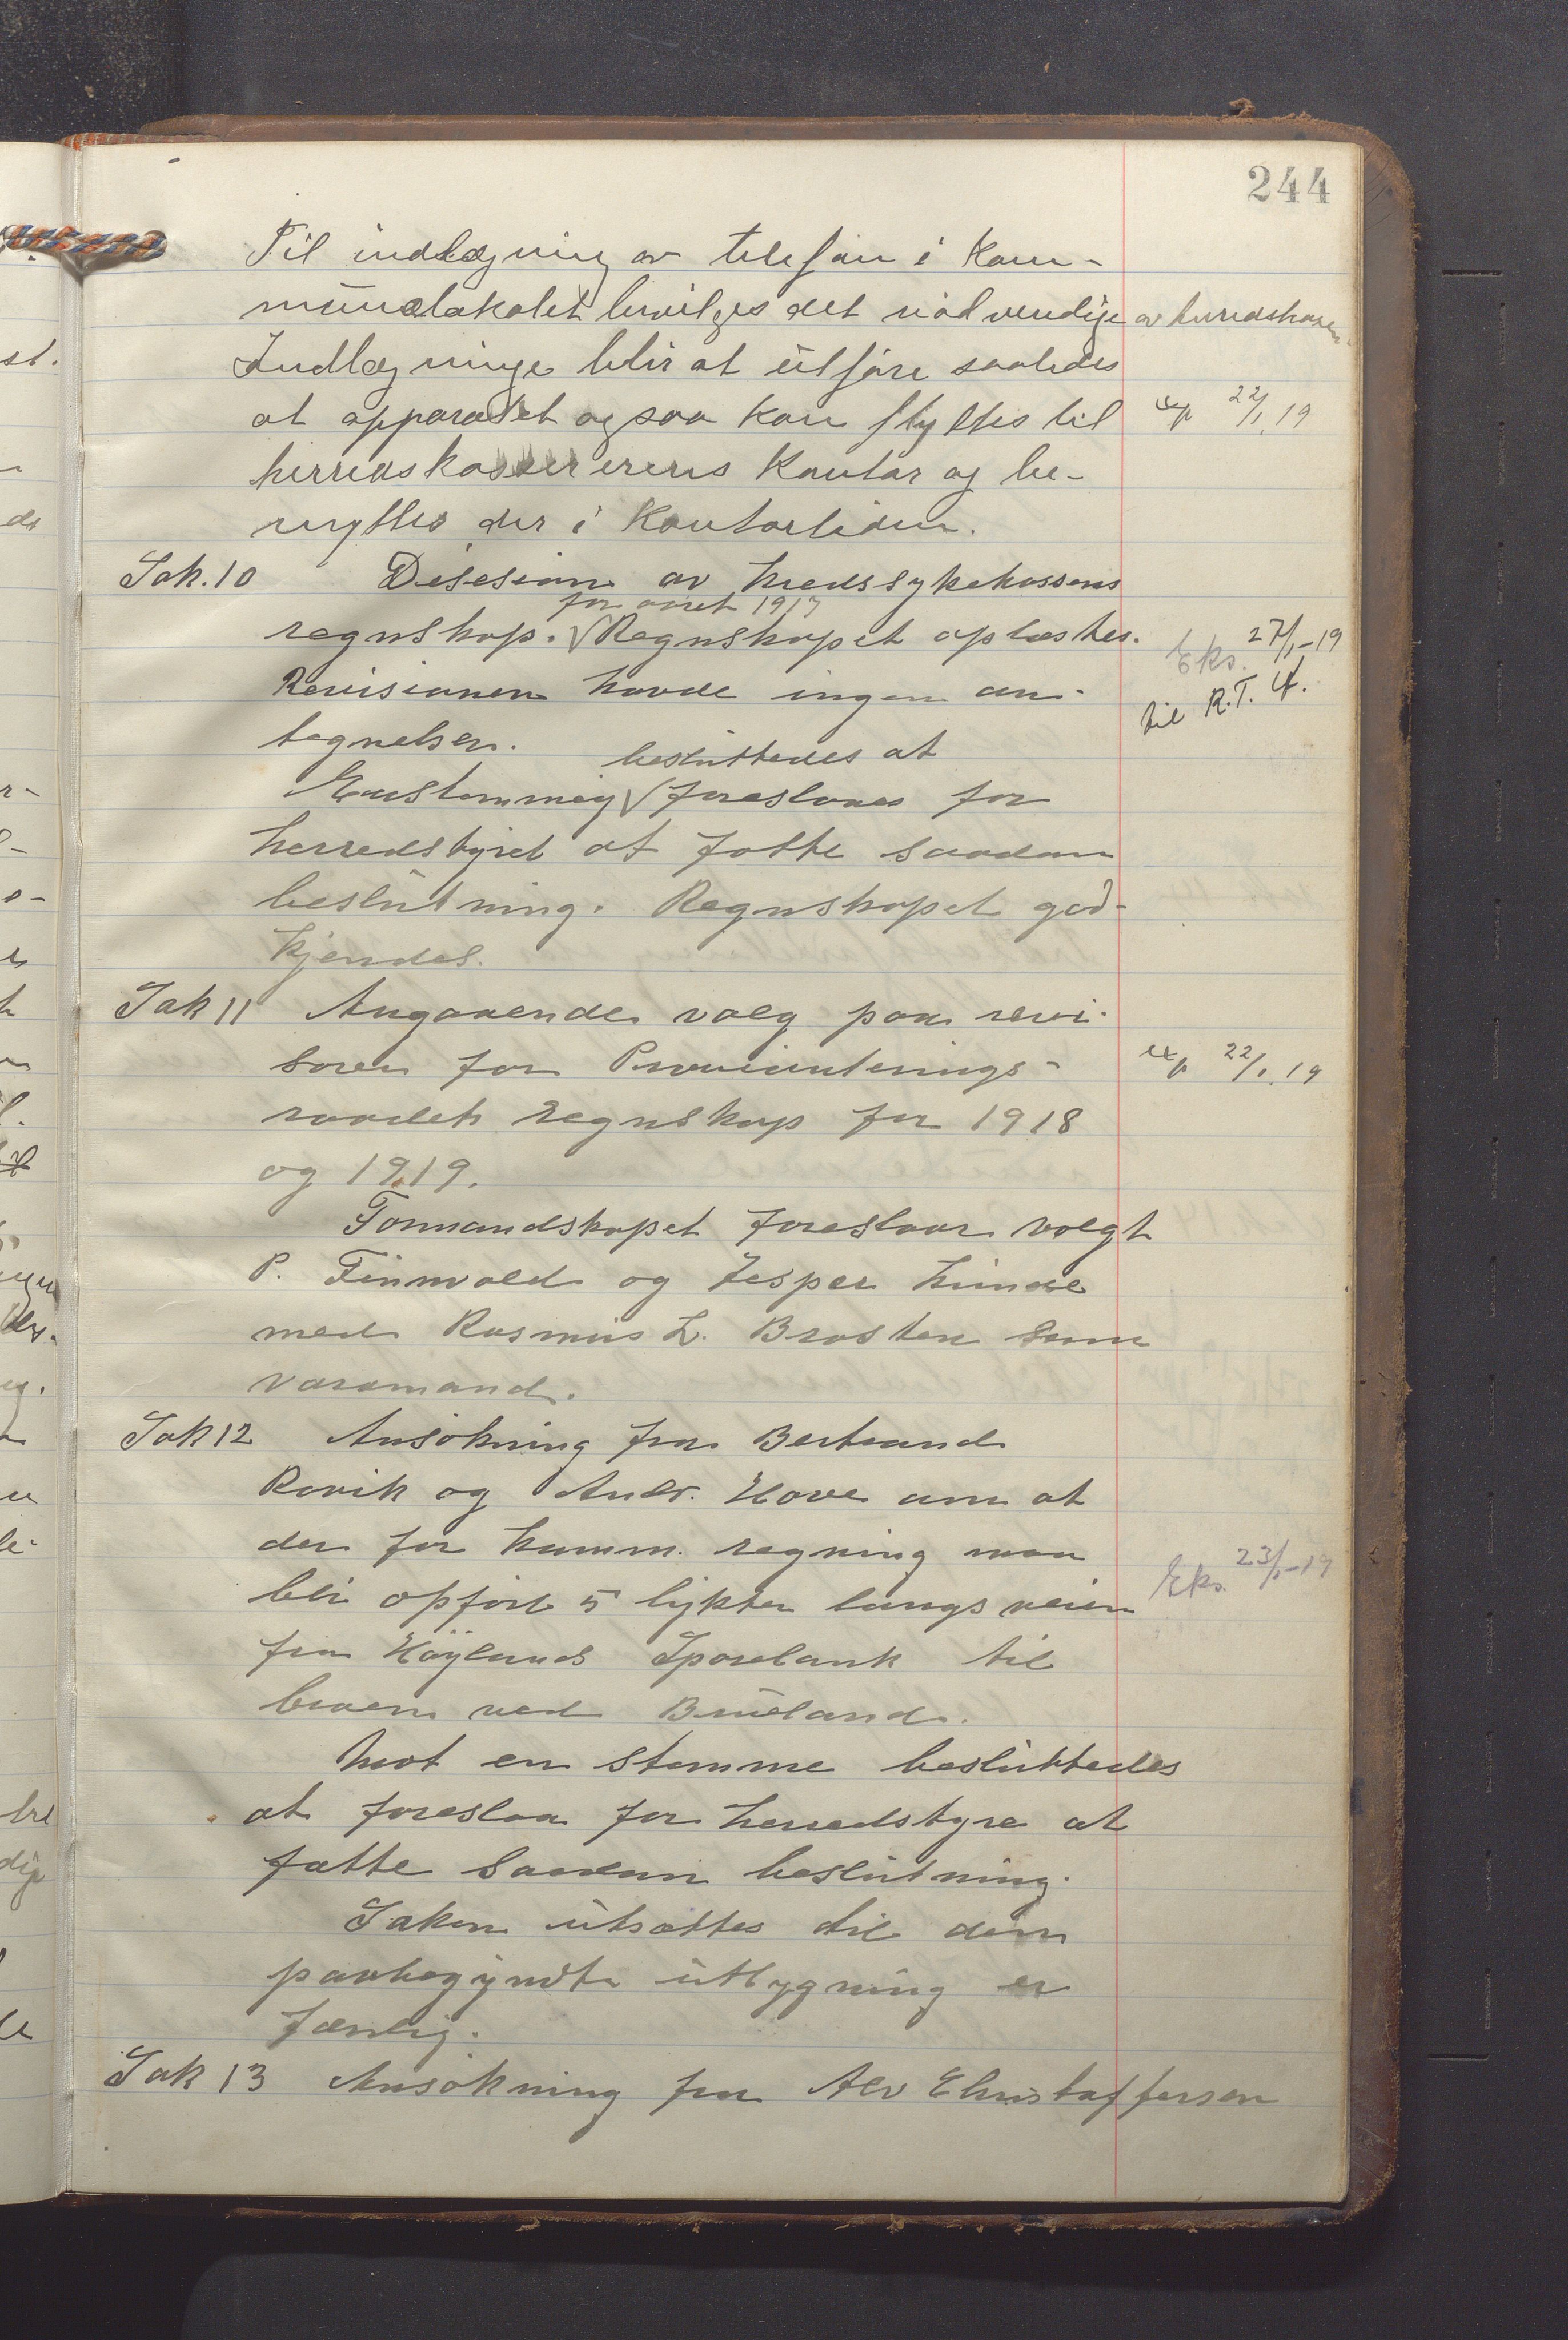 244
Til indlægning av telefon i Kom-
munelokalet bevilges det nödvendige av herredskassen
Indlægninge blir at utföre saaledes
at apparatet ogsaa kan flyttes til
exp 22/1 19
herredskassererens Kontor og be-
nyttes der i Kontortiden.
Sak. 10 Desesion av kredssykekassens
for aaret 1917
regnskap. √ Regnskapet oplæstes.
Eks. 27/1-19
Revisionen havde ingen an-
til R.T. 4.
tegnelser.
besluttedes at
Enstemmig √ foreslaaes for
herredstyret at fatte saadan
beslutning. Regnskapet god-
kjendes.
Sak 11 Angaaende valg paa revi-
sorer for Provianterings-
exp 22/1. 19
raadets regnskap for 1918
og 1919.
Formandskapet foreslaar valgt
P. Finnvold og Jesper Lunde
med Rasmus L. Brosten som
varamand.
Sak 12 Ansökning fra Bertrand
Rovik og Andr. Hove om at
der for komm. regning maa
Eks. 23/1-19
bli opfört 5 lykter langs veien
fra Höylands Sparebank til
broen ved Brueland.
Mot en stemme besluttedes
at foreslaa for herredstyre at
fatte saadan beslutning.
Saken utsættes til den
paabegyndte utbygning er
færdig.
Sak 13 Ansökning fra Alv Christoffersen